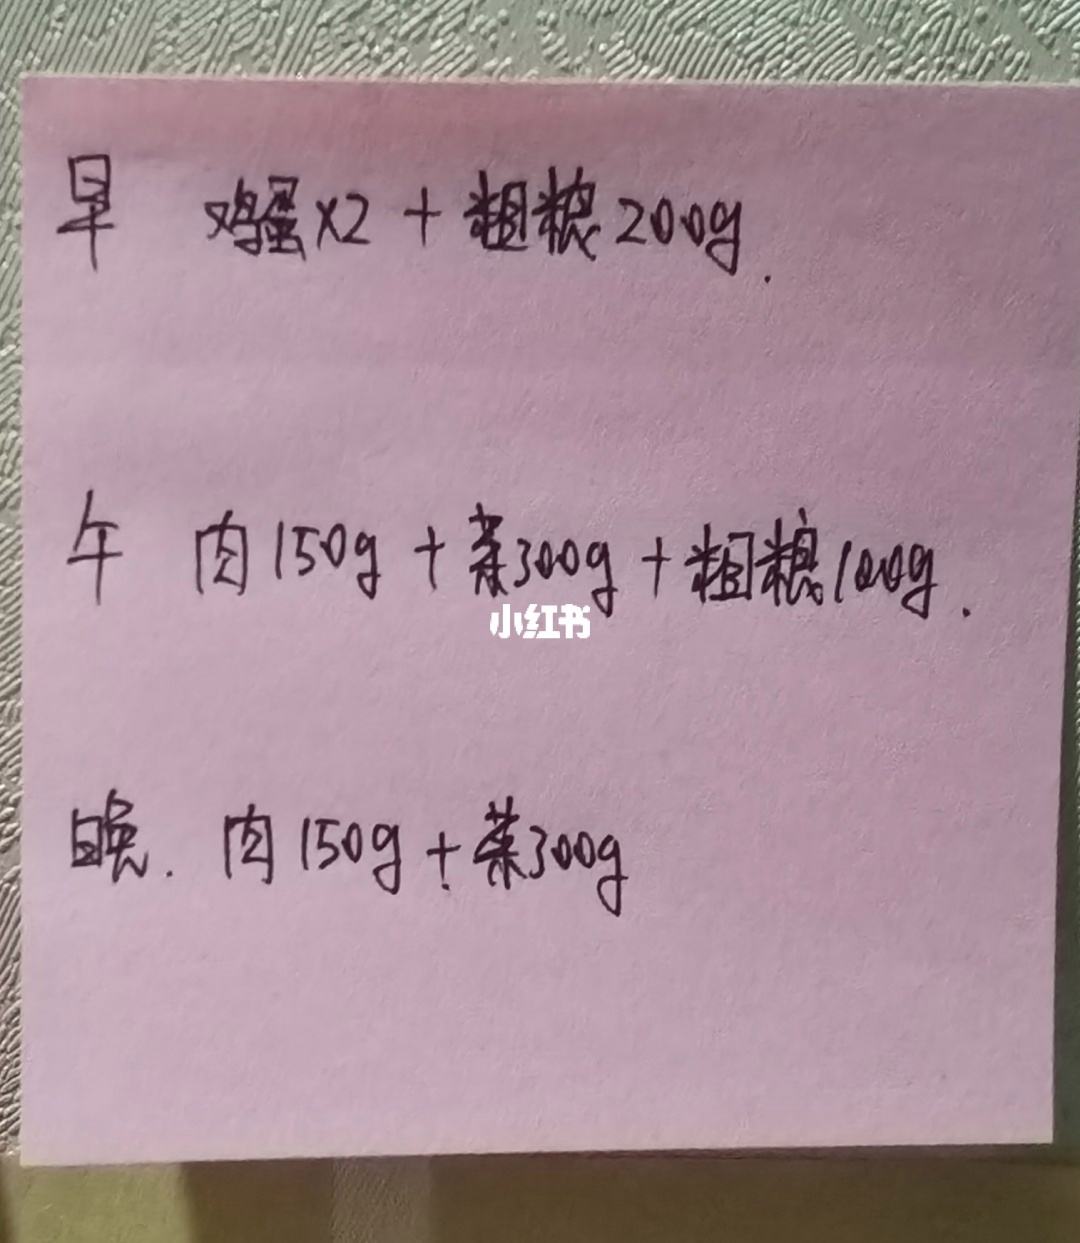 早 鸡蛋x2 + 粗粮200g.
午 肉150g + 菜300g + 粗粮100g.
小红书
晚. 肉150g + 菜300g